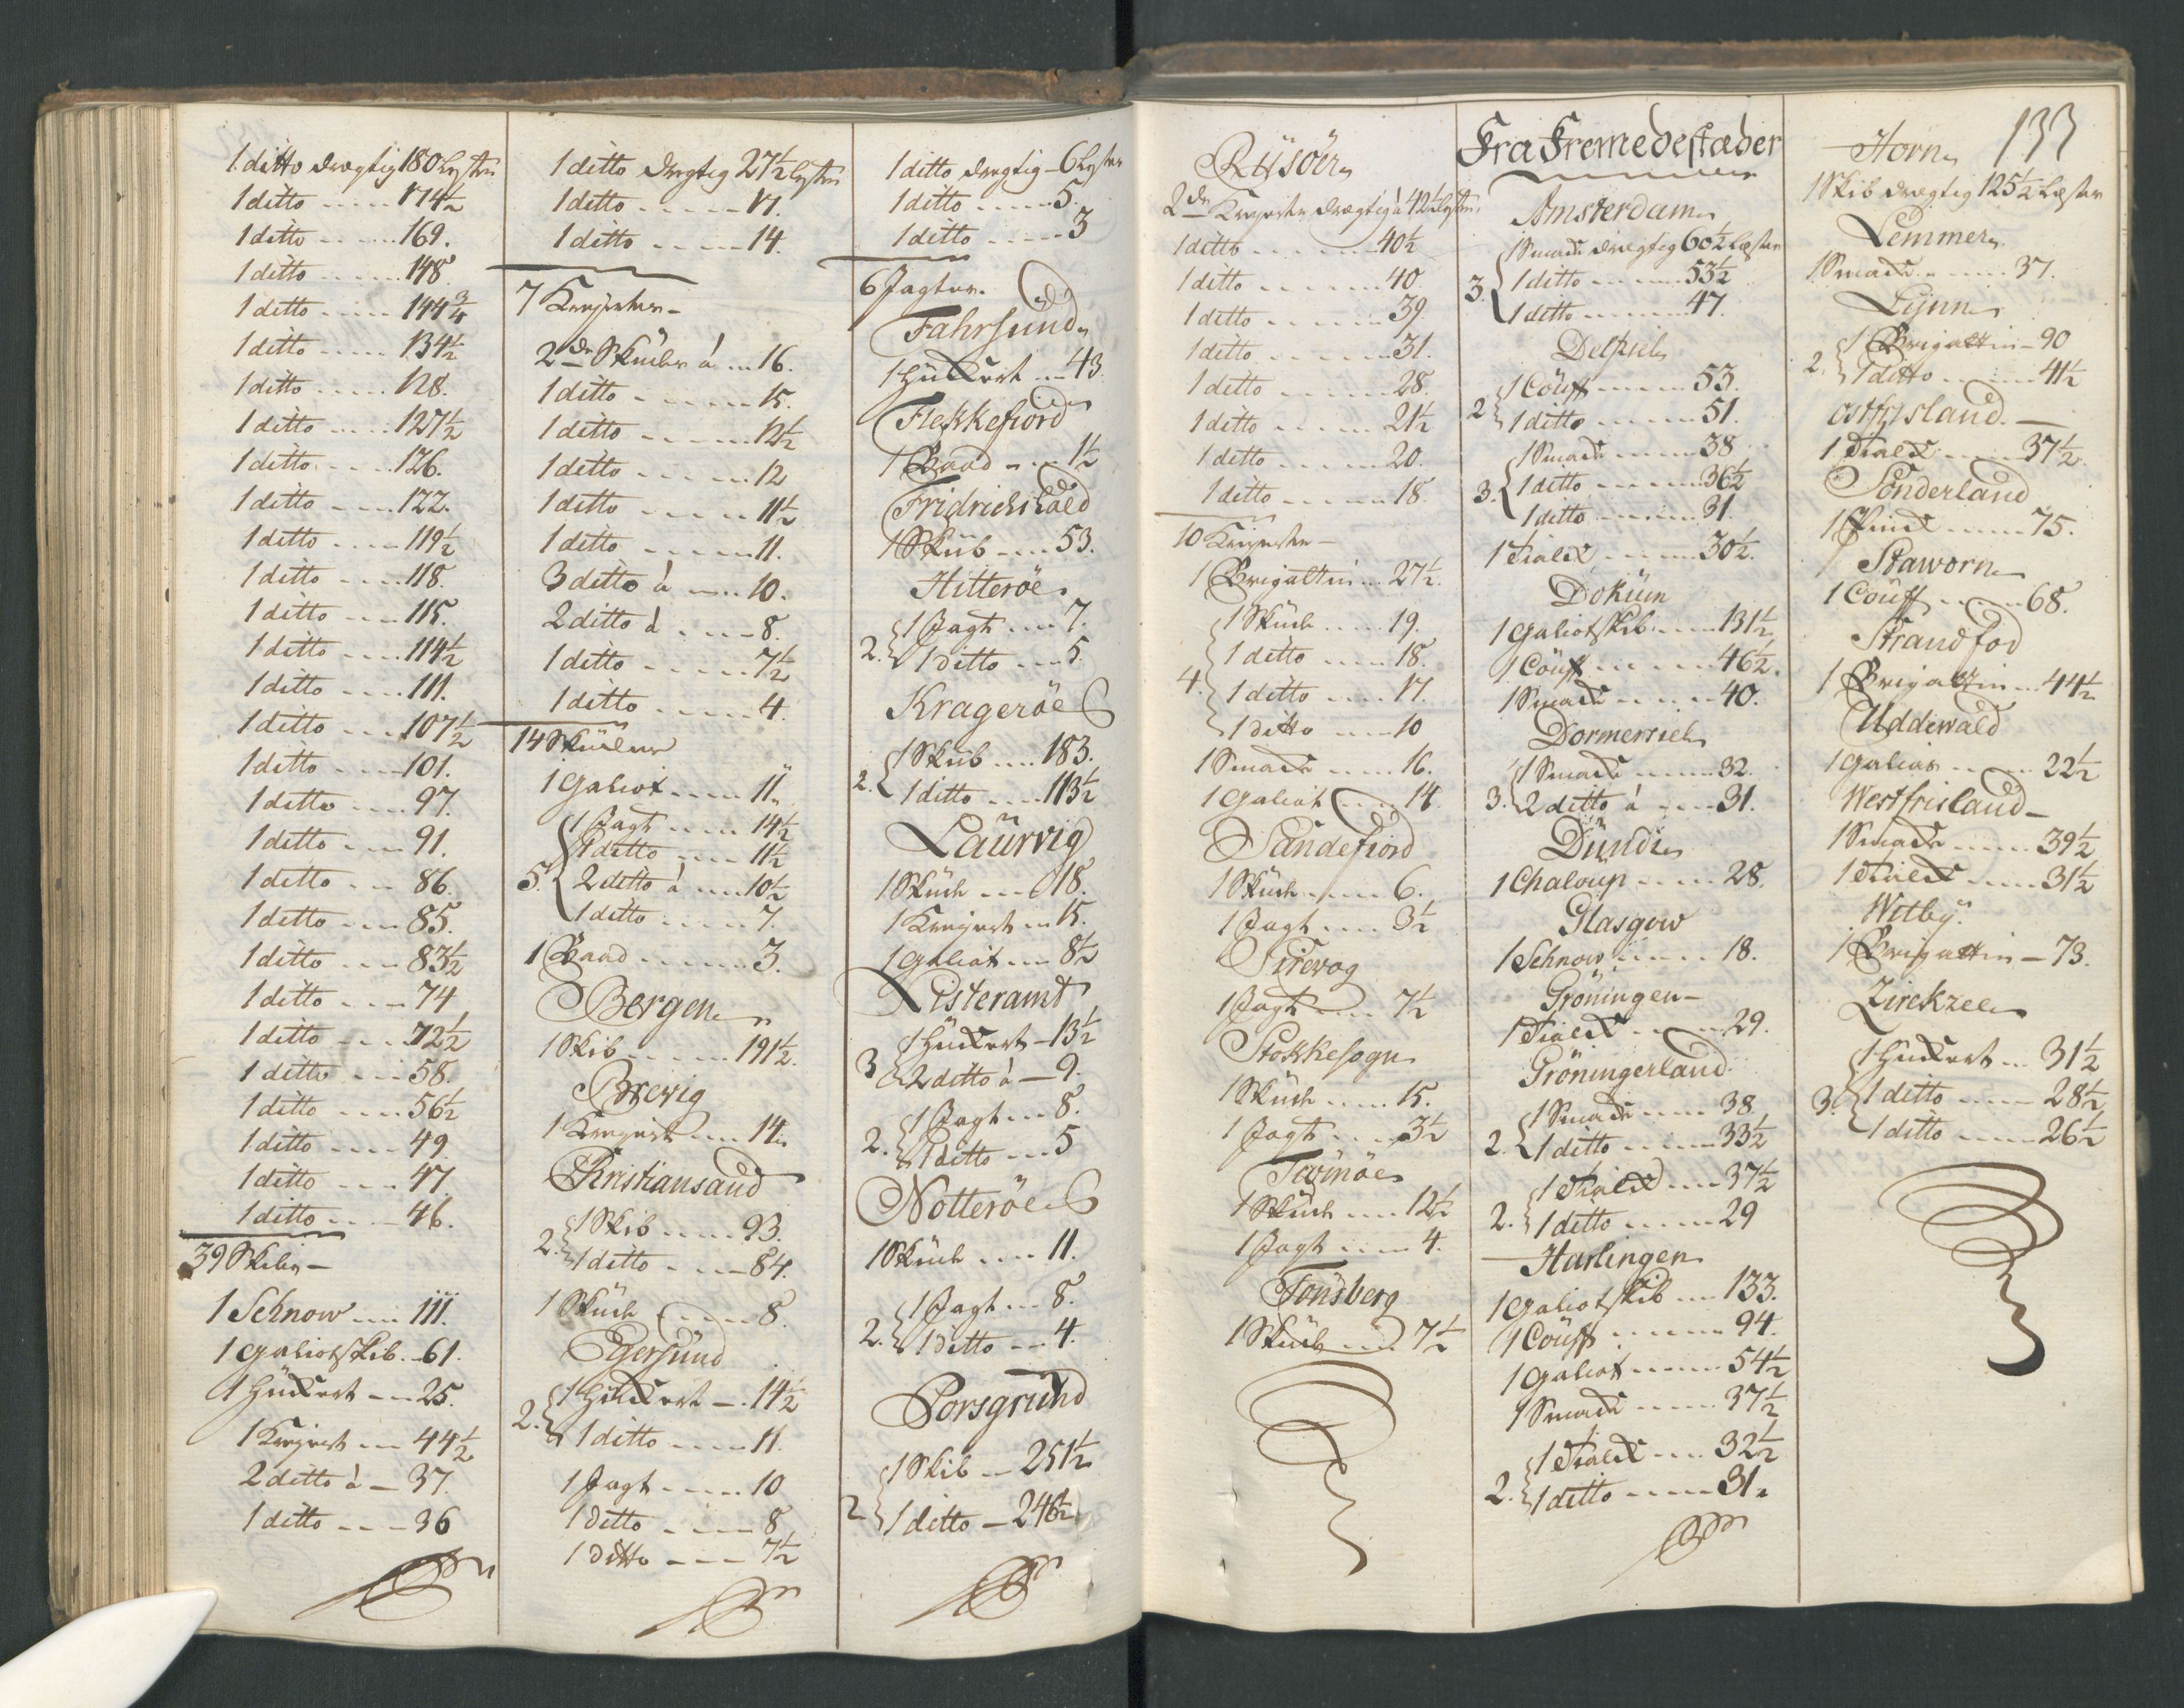 1 ditto drægtig 180 Lester
1 ditto ..... 174½
1 ditto ..... 169.
1 ditto ..... 148
1 ditto ..... 144¾
1 ditto ..... 134½
1 ditto ..... 128.
1 ditto ..... 127½
1 ditto .... 126.
1 ditto .... 122.
1 ditto .... 119½
1 ditto .... 118.
1 ditto .... 115.
1 ditto .... 114½
1 ditto .... 111.
1 ditto .... 107½
1 ditto .... 101.
1 ditto .... 97.
1 ditto .... 91.
1 ditto ... 86.
1 ditto .... 85.
1 ditto .... 83½
1 ditto .... 74
1 ditto .... 72½
1 ditto .... 58.
1 ditto .... 56½
1 ditto .... 49.
1 ditto .... 47
1 ditto .... 46.
39 Skibe
1 Schnow .... 111.
1 Galiotskib .. 61.
1 Huckert ... 25.
1 Kreyert ... 44½
2 ditto à - 37.
1 ditto ... 36
1 ditto drægtig 27½ Lester
1 ditto ..... 17.
1 ditto ..... 14.
7 Kreyerter
2de Skuder à ... 16.
1 ditto ..... 15.
1 ditto ..... 12½
1 ditto ..... 12
1 ditto ..... 11½
1 ditto ..... 11.
3 ditto à .... 10.
2 ditto à .... 8.
1 ditto ..... 7½
1 ditto ..... 4.
14 Skuder
1 Galiot ..... 11.
5. 1 Jagt .... 14½
1 ditto .... 11½
2 ditto à .... 10½
1 ditto .... 7.
1 Baad ...... 3.
Bergen
1 Skib ...... 191½.
Brevig
1 Kreyert .... 14.
Christiansand
2. 1 Skib ..... 93.
1 ditto .... 84.
1 Skude ..... 8.
Egersund
2. 1 Huckert .. 14½
1 ditto .... 11.
1 Jagt .... 10
1 ditto .... 8
1 ditto .... 7½
1 ditto drægtig - 6 Lester
1 ditto ..... 5.
1 ditto ..... 3
6 Jagter.
Fahrsund
1 Huckert ... 43
Flekkefiord
1 Baad .... 1½
Fridrichshald
1 Skib .... 53.
Hitteröe
2. 1 Jagt .... 7.
1 ditto .... 5.
Krageröe
2. 1 Skib .... 183.
1 ditto .... 113½
Laurvig
1 Skude .... 18.
1 Kreyert ... 15.
1 Galiot ... 8½
Listeramt
3 1 Huckert - 13½
2 ditto à - 9.
2. 1 Jagt ... 8.
1 ditto ... 5
Notteröe
1 Skude .... 11.
2. 1 Jagt ... 8.
1 ditto ... 4.
Porsgrund
2 1 Skib ... 251½
1 ditto - 246½
Riisöer
2de Kreyerter drægtig à 42½ Lester
1 ditto ...... 40½
1 ditto ...... 40
1 ditto ...... 39
1 ditto ...... 31.
1 ditto ...... 28.
1 ditto ...... 21½
1 ditto ...... 20.
1 ditto ...... 18.
10 Kreyerter
1 Brigattin ... 27½.
4. 1 Skude .... 19.
1 ditto .... 18.
1 ditto .... 17.
1 ditto .... 10
1 Smack .... 16.
1 Galiot .... 14.
Sandefiord
1 Skude .... 6.
1 Jagt .... 3½
Sirevog
1 Jagt .... 7½
Stokkesogn
1 Skude .... 15.
1 Jagt .... 3½
Tiömöe
1 Skude .... 12½
1 Jagt .... 4.
Tönsberg
1 Skude .... 7½
Fra Fremedestæder
Amsterdam
3. 1 Smack drægtig 60½ Læster
1 ditto ...... 53½
1 ditto ...... 47.
Delfziel
2 1 Couff ..... 53.
1 ditto ..... 51.
3. 1 Smack ..... 38
1 ditto ..... 36½
1 ditto ..... 31.
1 Tialck ..... 30½.
Dokum
1 Galiotskib .... 131½
1 Couff ..... 46½.
1 Smack ..... 40.
Dormersiel
3. 1 Smack ..... 32.
2 ditto à .... 31.
Dundi
1 Chaloup .... 28.
Glasgow
1 Schnow ..... 18.
Gröningen
1 Tialck ..... 29.
Gröningerland
2. 1 Smack .... 38
1 ditto ..... 33½
2. 1 Tialck .... 37½
1 ditto ..... 29
Harlingen
1 Galiotskib ... 133.
1 Couff ..... 94.
1 Galiot ..... 54½
1 Smack ..... 37½
2. 1 Tialck .... 32½
1 ditto .... 31.
133
Horn
1 Skib drægtig 125½ Læster
Lemmer
1 Smack ..... 37.
Lynn
2. 1 Brigattin - 90
1 ditto ..... 41½
Ostfrisland.
1 Tialck ..... 37½
Sönderland
1 Pinck ..... 75.
Staworn
1 Couff ..... 68.
Strandfod
1 Brigattin ... 44½
Uddewald
1 Galias ..... 22½
Westfrisland
1 Smack ..... 39½
1 Tialck ..... 31½
Witby.
1 Brigattin - 73.
Zirckzee
3. 1 Huckert ... 31½
1 ditto .... 28½
1 ditto .... 26½